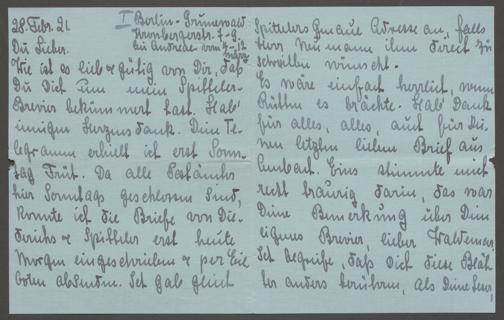 28. Febr. 21
I Berlin-Grunewald
Kronbergerstr. 7-9
bei Andreae - vom 7.-12
März
Du Lieber.
Wie ist es lieb & gütig von Dir, daß
Du Dich um mein Spitteler-
Brevier bekümmert hast. Hab'
innigen Herzensdank. Dein Te-
legramm erhielt ich erst Sonn-
tag Früh. Da alle Postämter
hier Sonntags geschlossen sind,
konnte ich die Briefe von Die-
derichs & Spitteler erst heute
Morgen eingeschrieben & per Eil
boten absenden. Ich gab gleich
Spittelers Genaue Adresse an, falls
Herr Neumann ihm direkt zu
schreiben wünscht.
Es wäre einfach herrlich, wenn
Rütten es brächte. Hab' Dank
für alles, alles, auch für Dei-
nen letzten lieben Brief aus
Ambach. Eins stimmte mich
recht traurig darin, das war
Deine Bemerkung über Dein
eigenes Brevier, lieber Waldemar.
Ich begreife, daß Dich diese Blät-
ter anders berühren, als Deine Leser